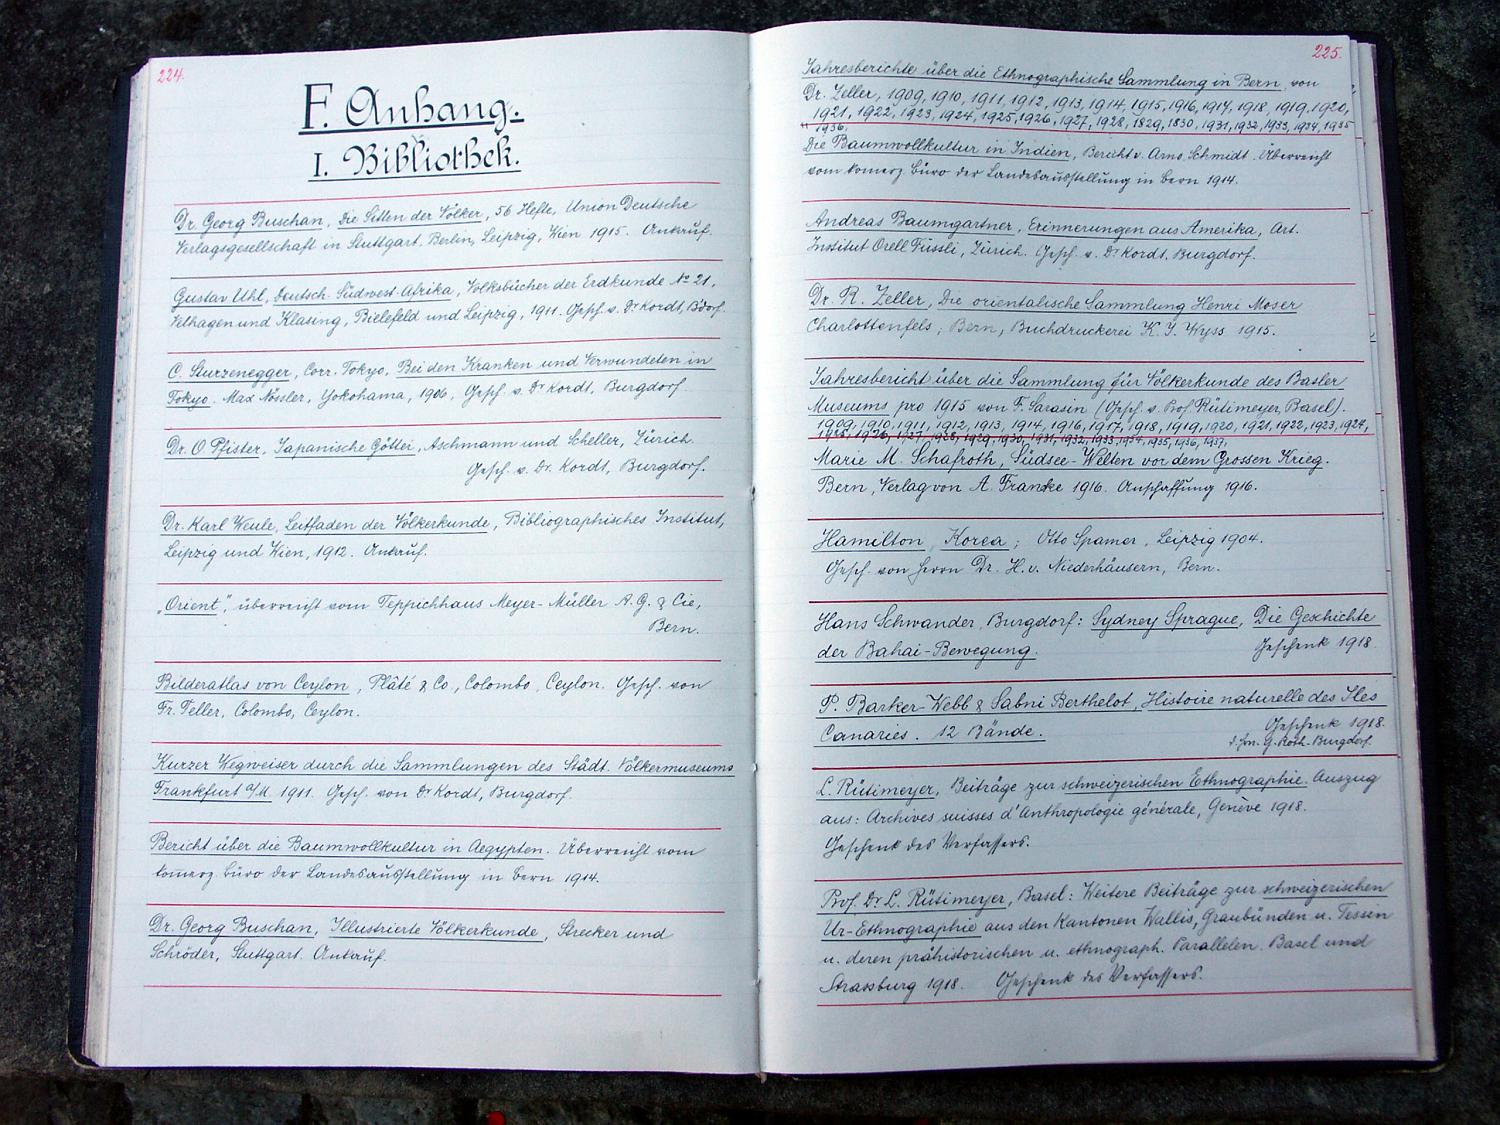 224.
F. Anhang.
I. Bibliothek.
Dr. Georg Buschan, Die Sitten der Völker, 56 Hefte, Union Deutsche
Verlagsgesellschaft in Stuttgart, Berlin, Leipzig, Wien 1915. Ankauf.
Gustav Uhl, Deutsch-Südwest-Afrika, Volksbücher der Erdkunde No 21,
Velhagen und Klasing, Bielefeld und Leipzig, 1911. Gesch. v. Dr Kordt, Bdorf.
C. Sturzenegger, Corr. Tokyo, Bei den Kranken und Verwundeten in
Tokyo. Max Nössler, Yokohama, 1906, Gesch. v. Dr Kordt, Burgdorf.
Dr. O. Pfister, Japanische Götter, Aschmann und Scheller, Zürich.
Gesch. v. Dr. Kordt, Burgdorf.
Dr. Karl Weule, Leitfaden der Völkerkunde, Bibliographisches Institut,
Leipzig und Wien, 1912. Ankauf.
„Orient“, überreicht vom Teppichhaus Meyer-Müller A.G. & Cie,
Bern.
Bilderatlas von Ceylon, Plâté & Co., Colombo, Ceylon. Gesch. von
Fr. Feller, Colombo, Ceylon.
Kurzer Wegweiser durch die Sammlungen des Städt. Völkermuseums
Frankfurt a/M. 1911. Gesch. von Dr Kordt, Burgdorf.
Bericht über die Baumwollkultur in Aegypten. Überreicht vom
komerz. Büro der Landesausstellung in Bern 1914.
Dr. Georg Buschan, Illustrierte Völkerkunde, Strecker und
Schröder, Stuttgart. Ankauf.
225.
Jahresberichte über die Ethnographische Sammlung in Bern, von
Dr. Zeller, 1909, 1910, 1911, 1912, 1913, 1914, 1915, 1916, 1917, 1918, 1919, 1920,
1921, 1922, 1923, 1924, 1925, 1926, 1927, 1928, 1829, 1830, 1931, 1932, 1933, 1934, 1935
1936.
Die Baumwollkultur in Indien, Bericht v. Arno Schmidt. Überreicht
vom komerz. Büro der Landesausstellung in Bern 1914.
Andreas Baumgartner, Erinnerungen aus Amerika, Art.
Institut Orell Füssli, Zürich. Gesch. v. Dr Kordt, Burgdorf.
Dr. R. Zeller, Die orientalische Sammlung Henri Moser
Charlottenfels; Bern, Buchdruckerei K. J. Wyss 1915.
Jahresbericht über die Sammlung für Völkerkunde des Basler
Museums pro 1915 von F. Sarasin (Gesch. v. Prof. Rütimeyer, Basel).
1909, 1910, 1911, 1912, 1913, 1914, 1916, 1917, 1918, 1919, 1920, 1921, 1922, 1923, 1924,
1925, 1926, 1927, 1928, 1929, 1930, 1931, 1932, 1933, 1934, 1935, 1936, 1937,
Marie M. Schafroth, Südsee-Welten vor dem Grossen Krieg.
Bern, Verlag von A. Francke 1916. Anschaffung 1916.
Hamilton, Korea; Otto Spamer, Leipzig 1904.
Gesch. von Herrn Dr. H. v. Niederhäusern, Bern.
Hans Schwander, Burgdorf: Sydney Sprague, Die Geschichte
der Bahai-Bewegung. Geschenk 1918
P. Barker-Webb & Sabni Berthelot, Histoire naturelle des Iles
Canaries. 12 Bände. Geschenk 1918.
d. Hrn. G. Roth-Burgdorf.
L. Rütimeyer, Beiträge zur schweizerischen Ethnographie. Auszug
aus: Archives suisses d'Anthropologie générale, Genève 1918.
Geschenk des Verfassers.
Prof. Dr L. Rütimeyer, Basel: Weitere Beiträge zur schweizerischen
Ur-Ethnographie aus den Kantonen Wallis, Graubünden u. Tessin
u. deren prähistorischen u. ethnograph. Parallelen. Basel und
Strassburg 1918. Geschenk des Verfassers.